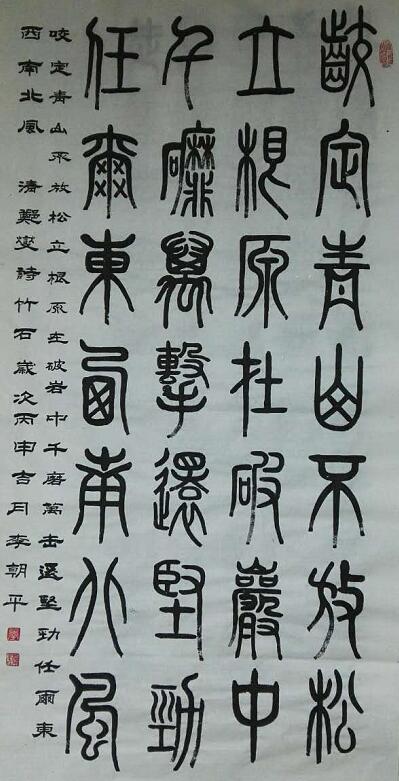 齩定青山不放松
立根原在破巖中
千磨萬擊還堅勁
任爾東西南北風
咬定青山不放松立根原在破岩中千磨萬击還堅劲任爾東
西南北風 清鄭燮詩竹石歲次丙申吉月李朝平